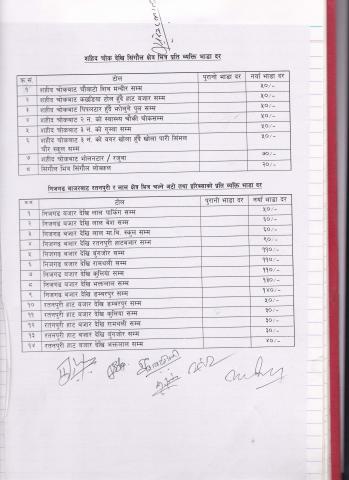 शहिद चोक देखि सिंगौल क्षेत्र भित्र प्रति व्यक्ति भाडा दर
क्र.सं. टोल पुरानो भाडा दर नयाँ भाडा दर
१ शहीद चोकबाट चौबाटो शिव मन्दीर सम्म ५०/-
२ शहीद चोकबाट कखडिया टोल हुँदै हाट बजार सम्म ५०/-
३ शहीद चोकबाट पिपलटार हुँदै झोलुंगे पुल सम्म ५०/-
४ शहीद चोकबाट २ नं. को स्वास्थ्य चौकी चोकसम्म ५०/-
५ शहीद चोकबाट ३ नं. को गुम्वा सम्म ५०/-
६ शहीद चोकबाट ३ नं. को वगर खोला हुँदै खोला पारी सिमल ५०/-
चौर स्कुल सम्म
७ शहीद चोकबाट भोलनटार / रजुवा ७०/-
८ सिंगौल भित्र सिंगौल लोक्कल २०/-
निजगढ बजारबाट रतनपुरी र लाल क्षेत्र भित्र चल्ने अटो तथा इरिक्साको प्रति व्यक्ति भाडा दर
क्र.सं. टोल पुरानो भाडा दर नयाँ भाडा दर
१ निजगढ बजार देखि लाल पार्किंग सम्म ५०/-
२ निजगढ बजार देखि लाल बेश सम्म ६०/-
३ निजगढ बजार देखि लाल मा.वि. स्कुल सम्म ६०/-
४ निजगढ बजार देखि रतनपुरी हाटबजार सम्म ९०/-
५ निजगढ बजार देखि बुंगजोर सम्म ११०/-
६ निजगढ बजार देखि रामथली सम्म ११०/-
७ निजगढ बजार देखि कुलिया सम्म ११०/-
८ निजगढ बजार देखि भक्तलाल सम्म १३०/-
९ निजगढ बजार देखि डम्बरपुर सम्म १४०/-
१० रतनपुरी हाट बजार देखि डम्बरपुर सम्म ५०/-
११ रतनपुरी हाट बजार देखि कुलिया सम्म ३०/-
१२ रतनपुरी हाट बजार देखि रामथली सम्म ३०/-
१३ रतनपुरी हाट बजार देखि बुंगजोर सम्म ३०/-
१४ रतनपुरी हाट बजार देखि भक्तलाल सम्म ४०/-